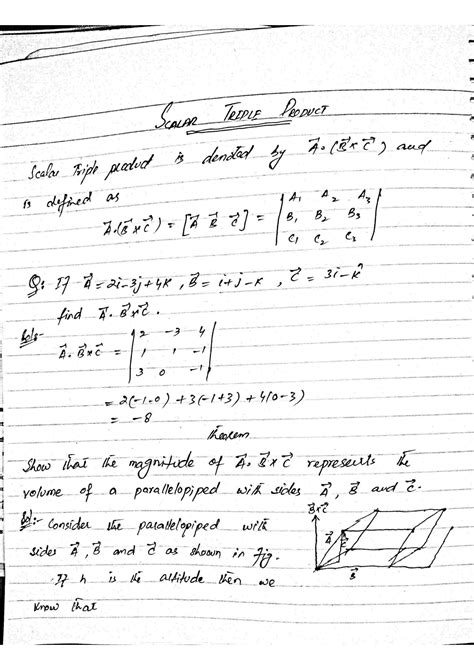 SCALAR TRIPLE PRODUCT
Scalar Triple product is denoted by A⃗.(B⃗×C⃗) and
is defined as
A⃗.(B⃗×C⃗) = [A⃗ B⃗ C⃗] = | A₁ A₂ A₃ |
| B₁ B₂ B₃ |
| C₁ C₂ C₃ |
Q: If A⃗ = 2i-3j+4k , B⃗ = i+j-k , C⃗ = 3i-k̂
find A⃗. B⃗×C⃗.
Sol:-
A⃗. B⃗×C⃗ = | 2 -3 4 |
| 1 1 -1 |
| 3 0 -1 |
= 2(-1-0) + 3(-1+3) + 4(0-3)
= -8
theorem
Show that the magnitude of A⃗. B⃗×C⃗ represents the
volume of a parallelopiped with sides A⃗, B⃗ and C⃗.
Sol:- Consider the parallelopiped with
sides A⃗, B⃗ and C⃗ as shown in Fig.
If h is the altitude then we
know that
B⃗×C⃗
A⃗
B⃗